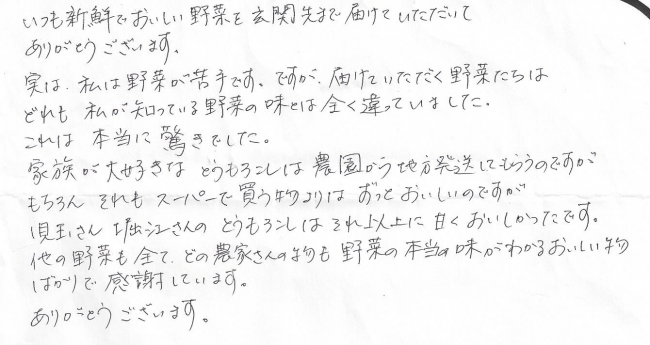 いつも新鮮でおいしい野菜を玄関先まで届けていただいて
ありがとうございます。
実は、私は野菜が苦手です。ですが、届けていただく野菜たちは
どれも 私が知っている野菜の味とは全く違っていました。
これは 本当に驚きでした。
家族が大好きな とうもろこしは 農園から地方発送してもらうのですが
もちろん それも スーパーで買う物よりは ずっとおいしいのですが
児玉さん 堀江さんの とうもろこしは それ以上に 甘く おいしかったです。
他の野菜も全て、どの農家さんの物も 野菜の本当の味がわかるおいしい物
ばかりで 感謝しています。
ありがとうございます。